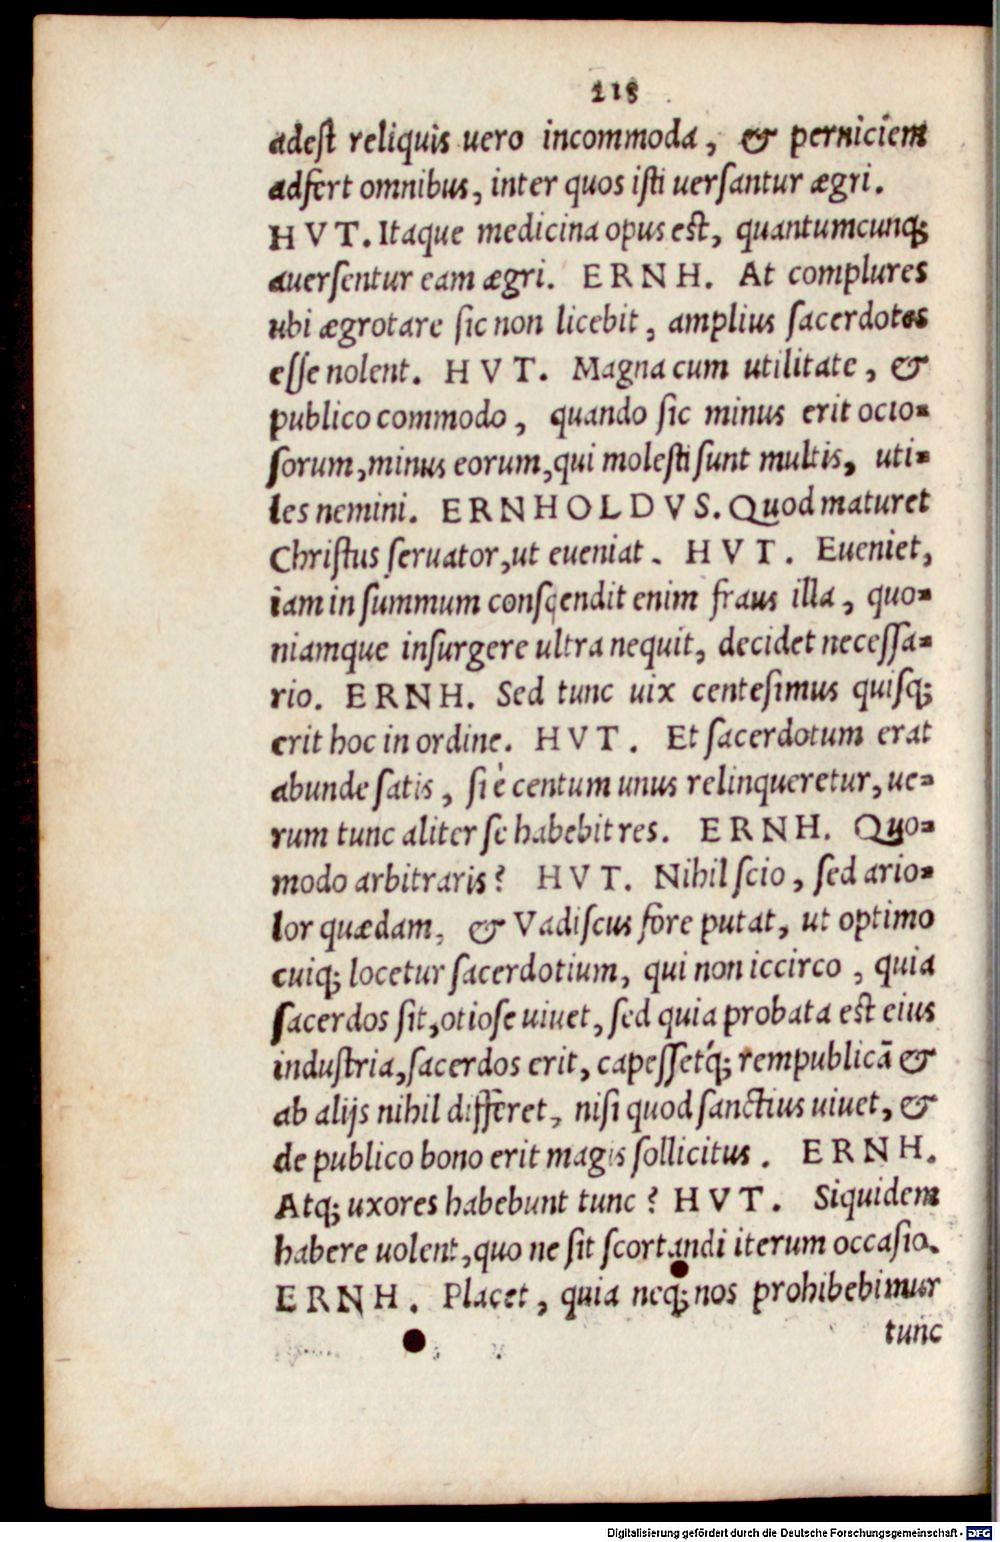 218
adest reliquis uero incommoda, & perniciem
adfert omnibus, inter quos isti uersantur ægri.
HVT. Itaque medicina opus est, quantumcunq;
auersentur eam ægri. ERNH. At complures
ubi ægrotare sic non licebit, amplius sacerdotes
esse nolent. HVT. Magna cum utilitate, &
publico commodo, quando sic minus erit ocio-
sorum, minus eorum, qui molesti sunt multis, uti-
les nemini. ERNHOLDVS. Quod maturet
Christus seruator, ut eueniat. HVT. Eueniet,
iam in summum conscendit enim fraus illa, quo-
niamque insurgere ultra nequit, decidet necessa-
rio. ERNH. Sed tunc uix centesimus quisq;
erit hoc in ordine. HVT. Et sacerdotum erat
abunde satis, si è centum unus relinqueretur, ue-
rum tunc aliter se habebit res. ERNH. Quo-
modo arbitraris? HVT. Nihil scio, sed ario-
lor quædam, & Vadiscus fore putat, ut optimo
cuiq; locetur sacerdotium, qui non iccirco, quia
sacerdos sit, otiose uiuet, sed quia probata est eius
industria, sacerdos erit, capessetq́; rempublicā &
ab alijs nihil differet, nisi quod sanctius uiuet, &
de publico bono erit magis sollicitus. ERNH.
Atq; uxores habebunt tunc? HVT. Siquidem
habere uolent, quo ne sit scortandi iterum occasio.
ERNH. Placet, quia neq; nos prohibebimur
tunc
Digitalisierung gefördert durch die Deutsche Forschungsgemeinschaft - DFG